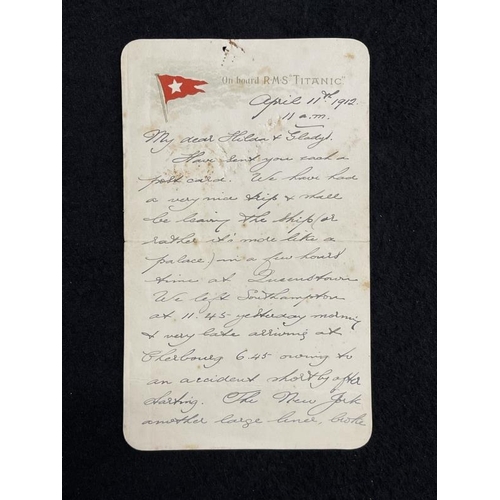 On board R.M.S. "TITANIC".
April 11th 1912.
11 a.m.
My dear Hilda & Gladys.
Have sent you each a
post card. We have had
a very nice trip & shall
be leaving the ship (or
rather it's more like a
palace) in a few hours
time at Queenstown
We left Southampton
at 11.45 yesterday morning
& very late arriving at
Cherbourg 6.45 owing to
an accident shortly after
starting. The New York
another large liner, broke